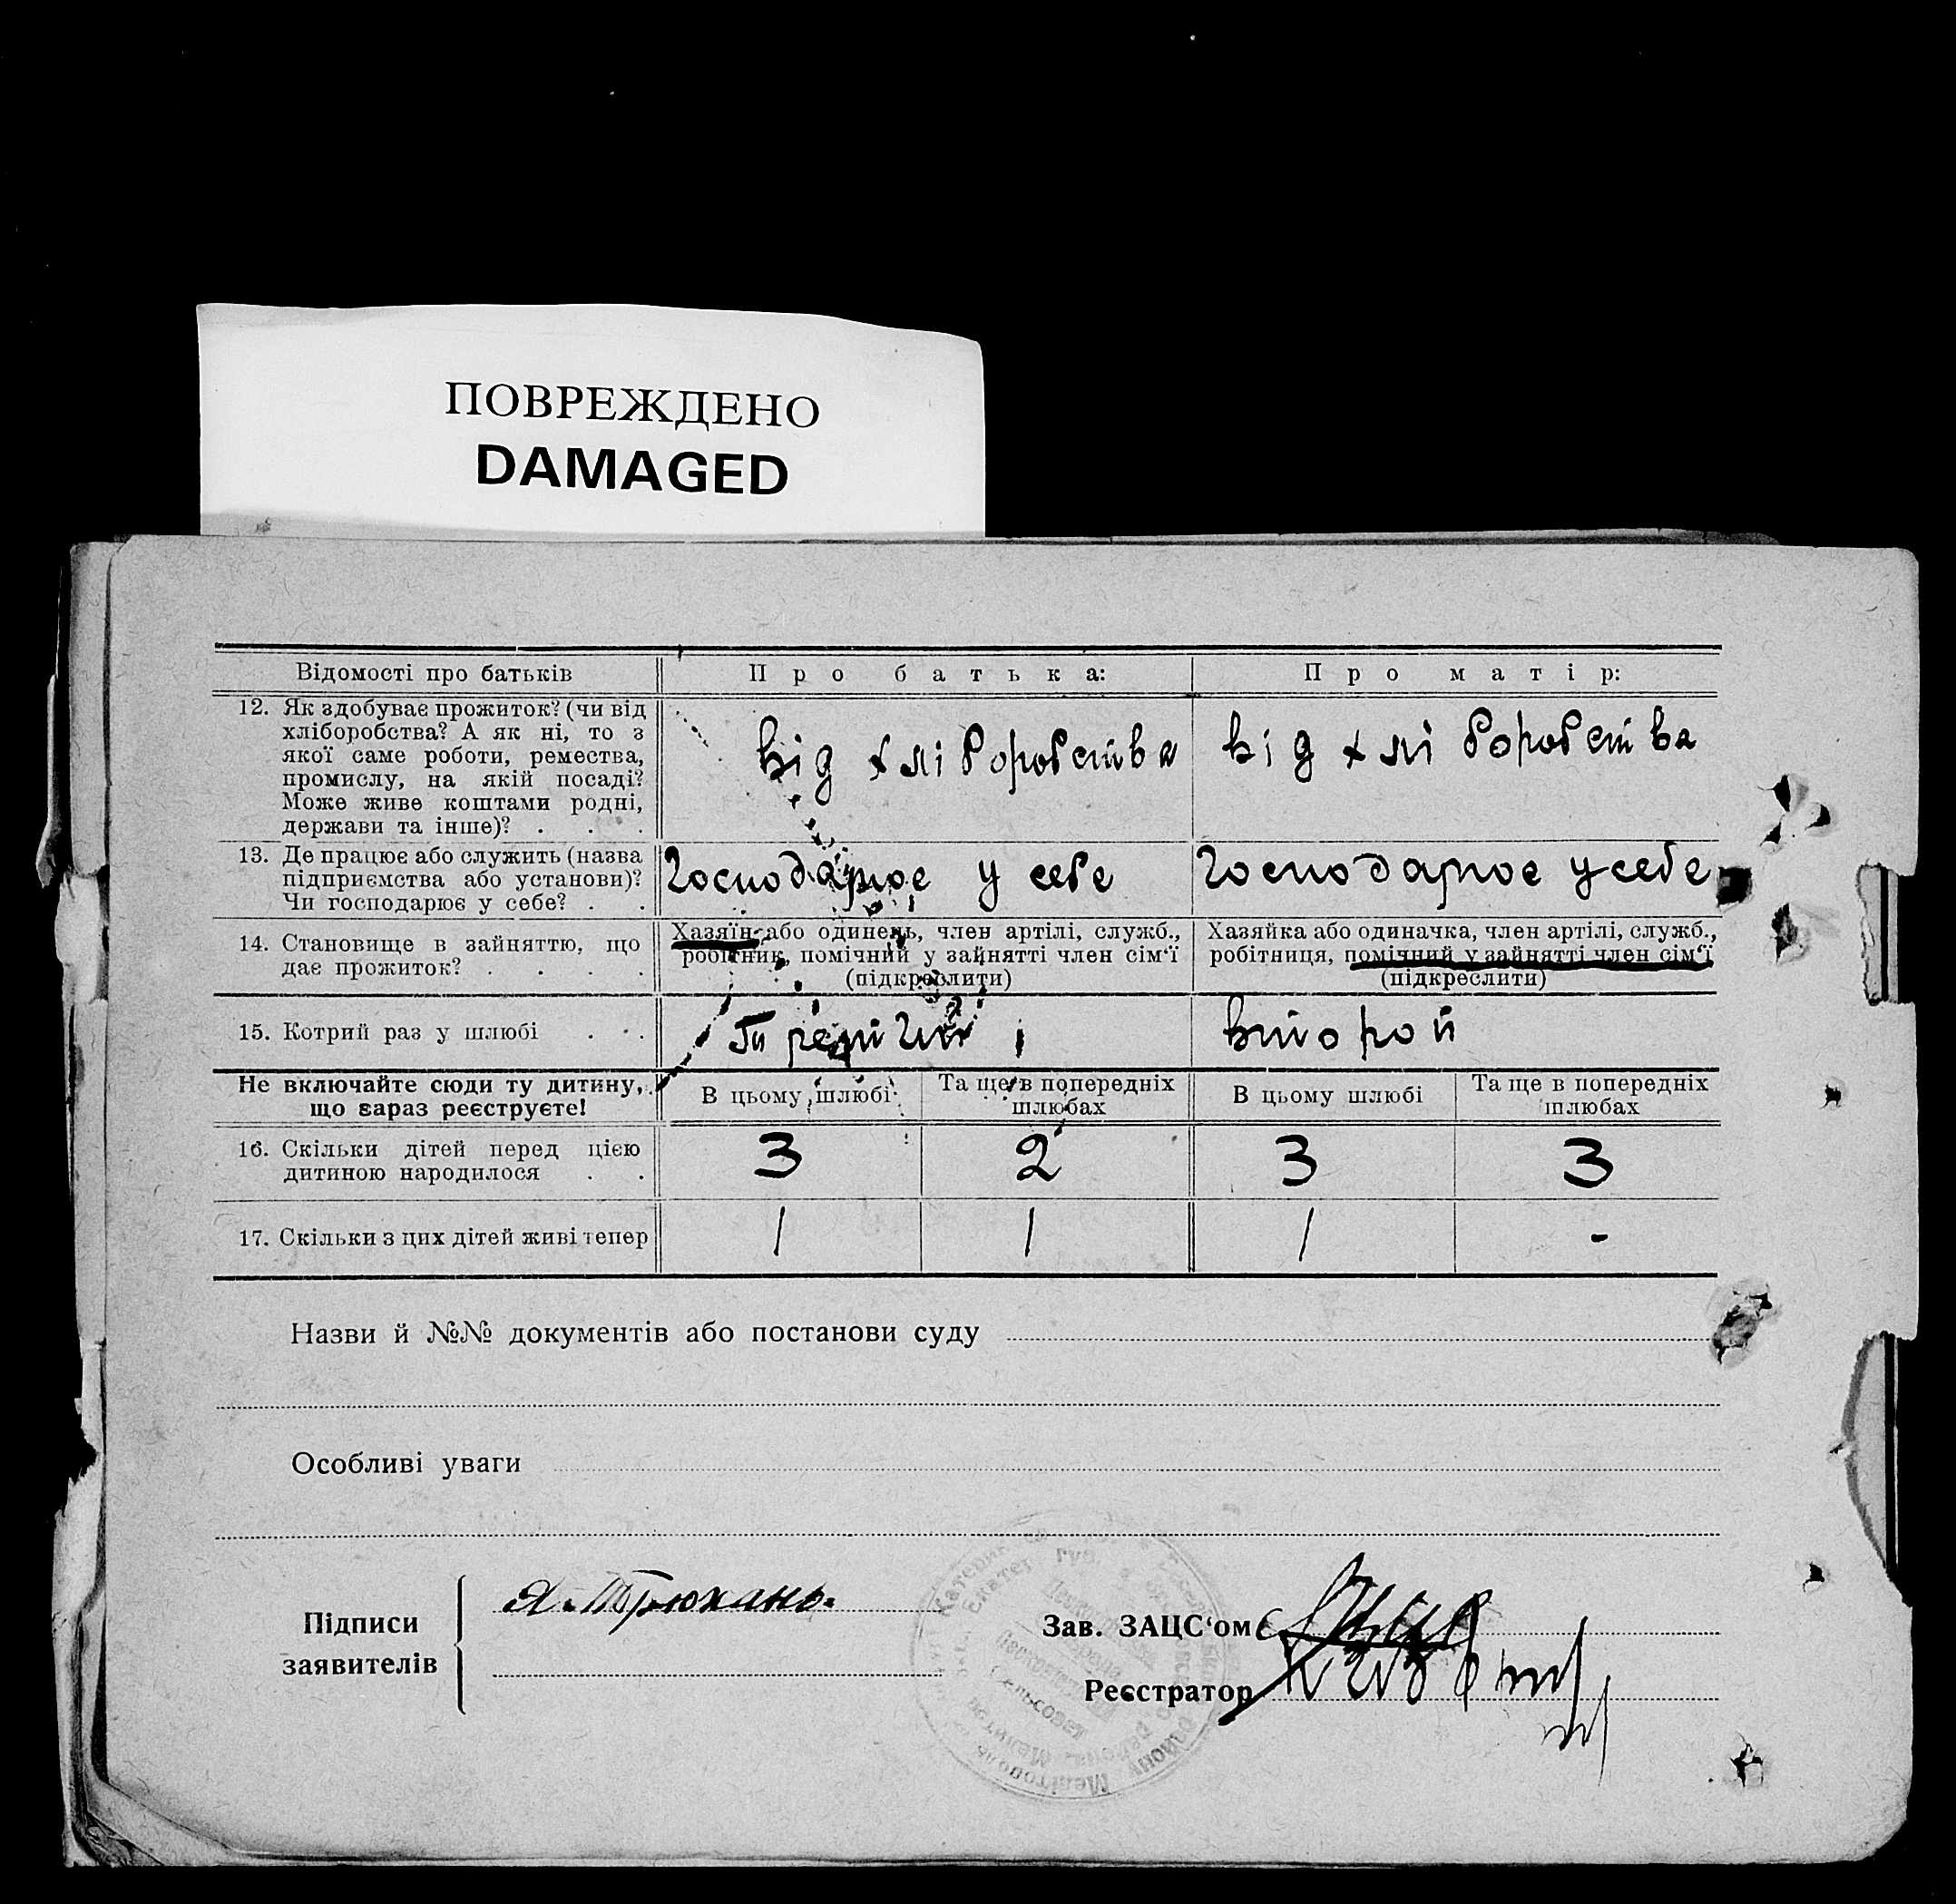 ПОВРЕЖДЕНО
DAMAGED
Відомості про батьків
Про батька:
Про матір:
12. Як здобуває прожиток? (чи від
хліборобства? А як ні, то з
якої саме роботи, ремества,
промислу, на якій посаді?
Може живе коштами родні,
держави та інше)? . . .
від хліборобства
від хліборобства
13. Де працює або служить (назва
підприємства або установи)?
Чи господарює у себе? . .
Господарює у себе
Господарює у себе
14. Становище в зайняттю, що
дає прожиток? . . . .
Хазяїн або одинець, член артілі, служб.,
робітник, помічний у зайнятті член сім'ї
(підкреслити)
Хазяйка або одиначка, член артілі, служб.,
робітниця, помічний у зайнятті член сім'ї
(підкреслити)
15. Котрий раз у шлюбі . . .
второй
Не включайте сюди ту дитину,
що зараз реєструєте!
В цьому шлюбі
Та ще в попередніх
шлюбах
В цьому шлюбі
Та ще в попередніх
шлюбах
16. Скільки дітей перед цією
дитиною народилося . .
3
2
3
3
17. Скільки з цих дітей живі тепер
1
1
1
-
Назви й №№ документів або постанови суду
Особливі уваги
Підписи
заявителів
Я. Трюхань.
Зав. ЗАЦС'ом
Реєстратор